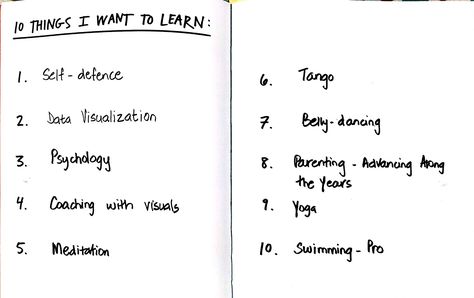 10 THINGS I WANT TO LEARN:
1. Self-defence
2. Data Visualization
3. Psychology
4. Coaching with visuals
5. Meditation
6. Tango
7. Belly-dancing
8. Parenting - Advancing Along
the Years
9. Yoga
10. Swimming - Pro